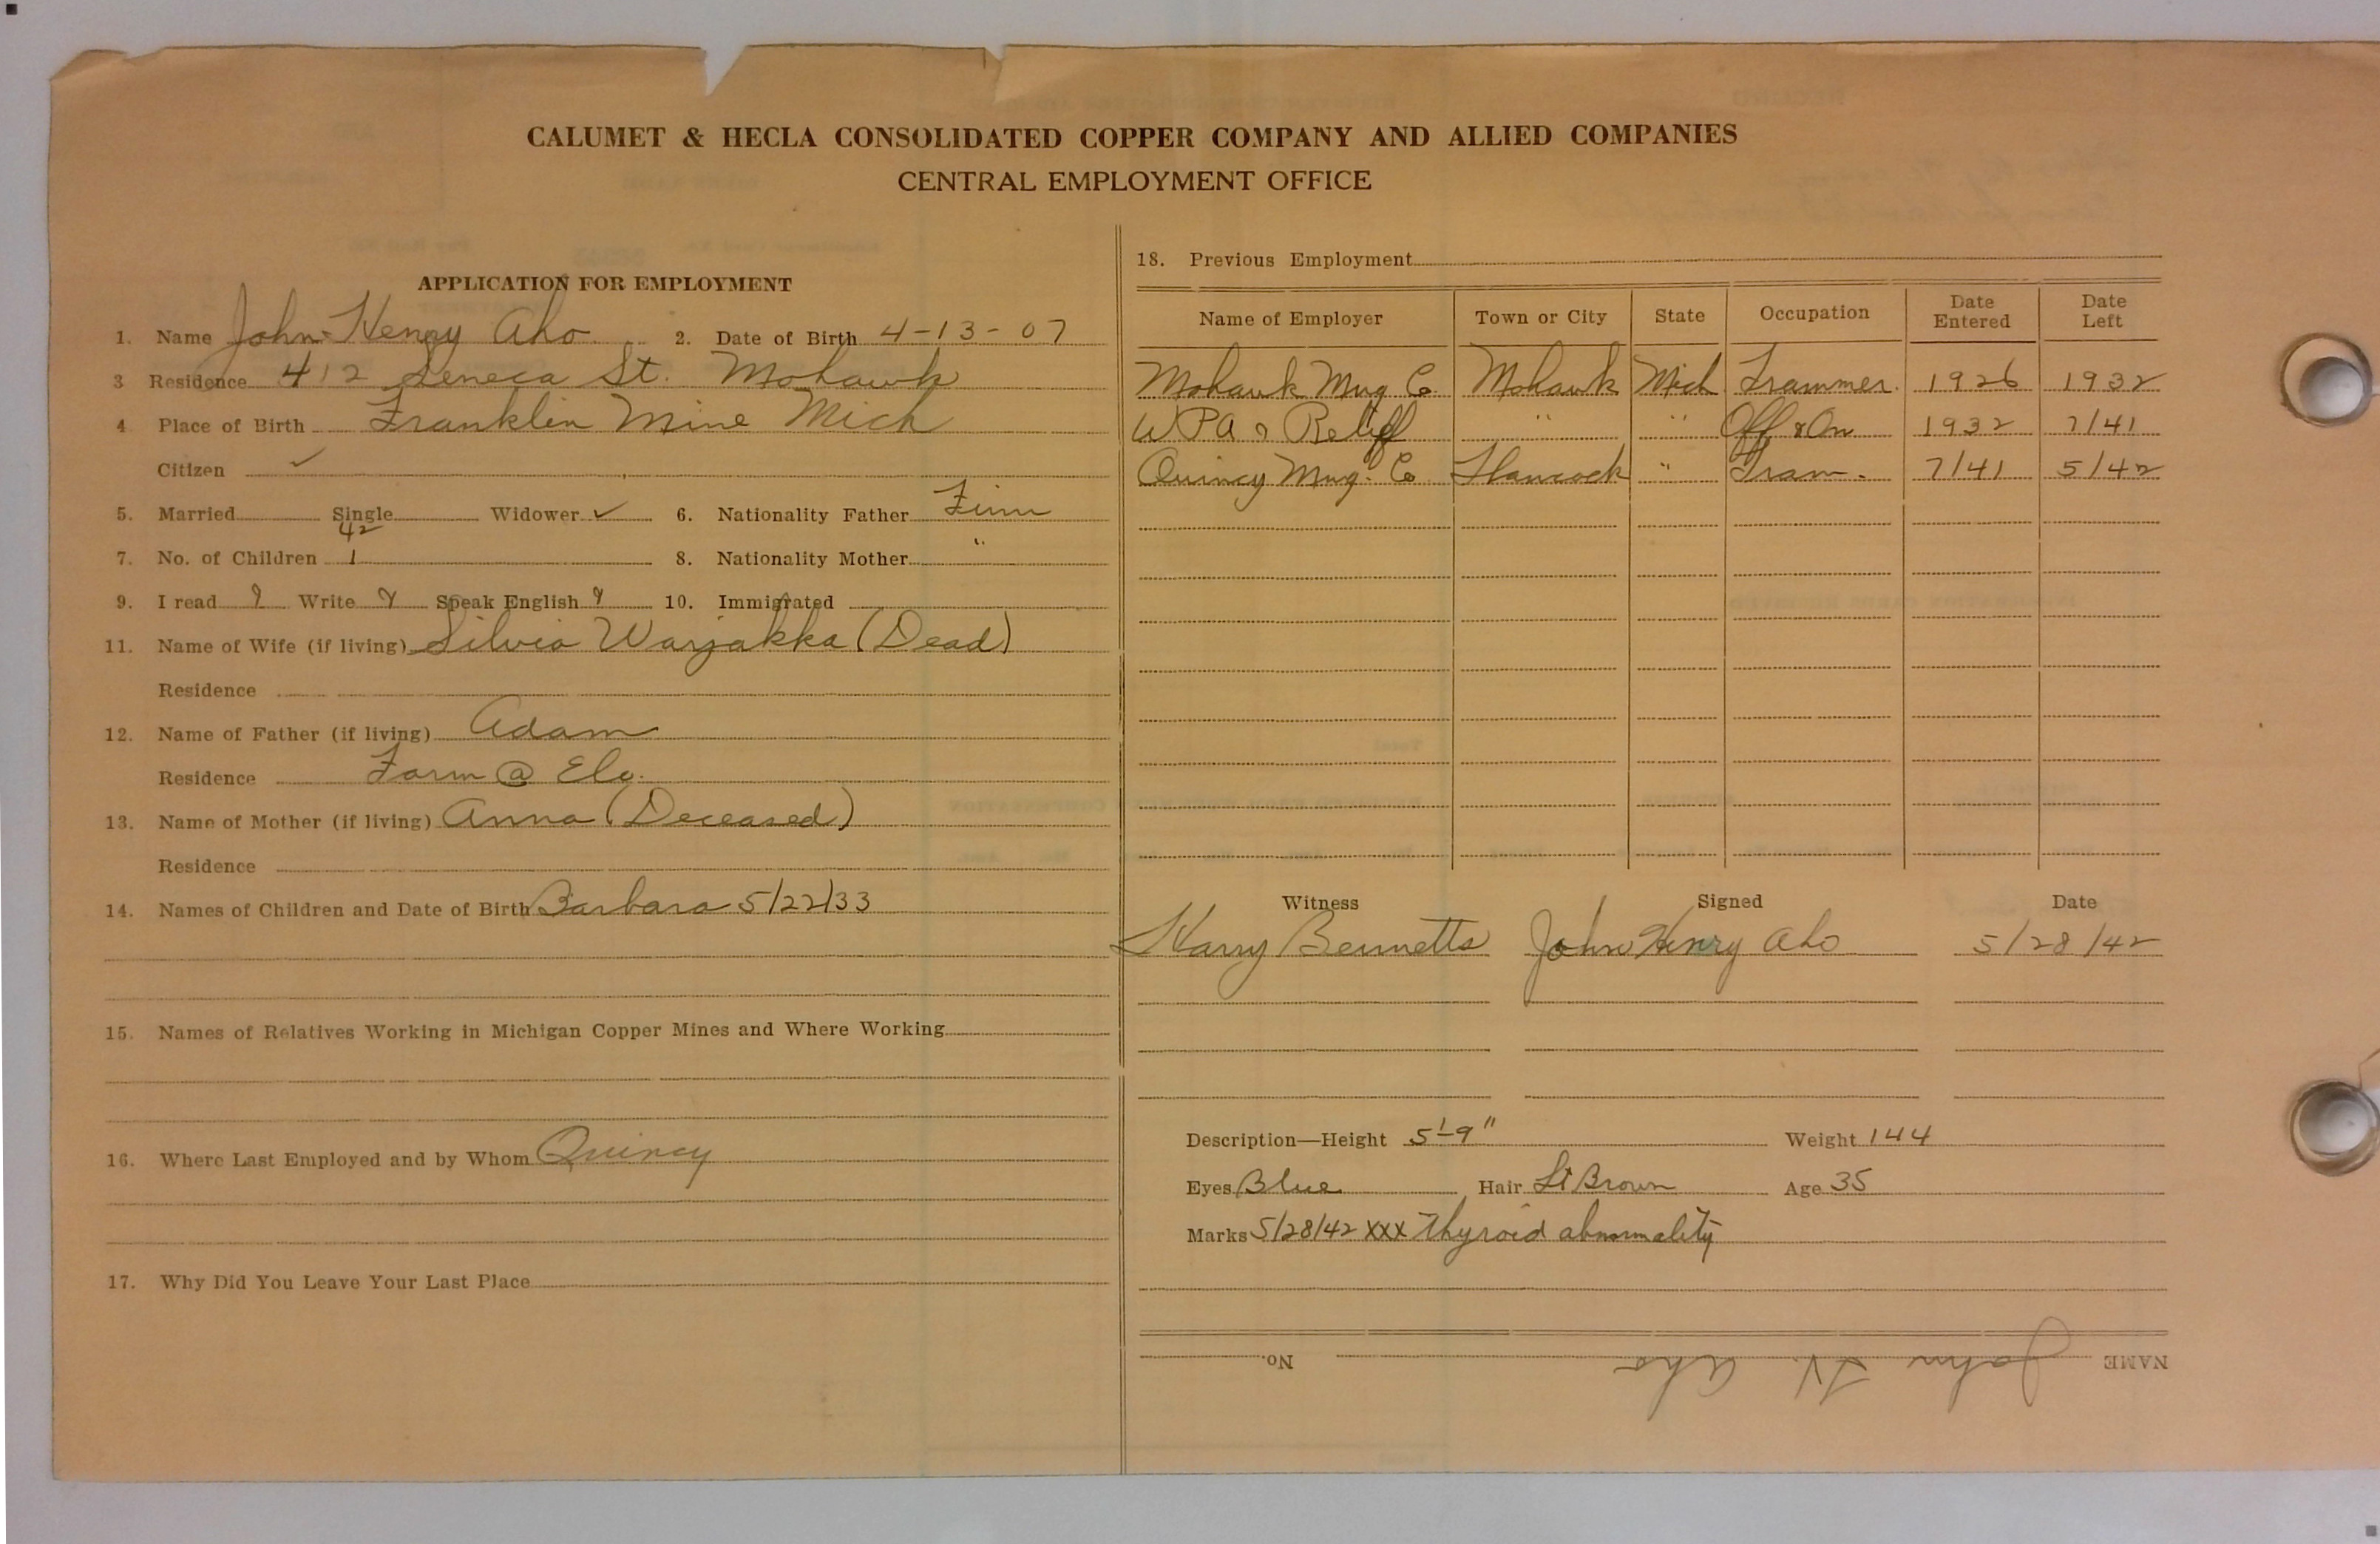 CALUMET & HECLA CONSOLIDATED COPPER COMPANY AND ALLIED COMPANIES
CENTRAL EMPLOYMENT OFFICE
APPLICATION FOR EMPLOYMENT
1. Name John Henry Aho 2. Date of Birth 4-13-07
3 Residence 412 Seneca St. Mohawk
4 Place of Birth Franklin Mine Mich
Citizen ✓
5. Married Single Widower ✓ 6. Nationality Father Finn
42
7. No. of Children 1 8. Nationality Mother "
9. I read Write Speak English 10. Immigrated
11. Name of Wife (if living) Silvia Warjakka (Dead)
Residence
12. Name of Father (if living) Adam
Residence Farm @ Elo.
13. Name of Mother (if living) Anna (Deceased)
Residence
14. Names of Children and Date of Birth Barbara 5/22/33
15. Names of Relatives Working in Michigan Copper Mines and Where Working
16. Where Last Employed and by Whom Quincy
17. Why Did You Leave Your Last Place
18. Previous Employment
Name of Employer Town or City State Occupation Date Entered Date Left
Mohawk Mng Co Mohawk Mich Trammer. 1926 1932
WPA & Relief " " Off & On 1932 7/41
Quincy Mng. Co Hancock " Tram. 7/41 5/42
Witness Signed Date
Harry Bennetts John Henry Aho 5/28/42
Description—Height 5'-9" Weight 144
Eyes Blue Hair Lt Brown Age 35
Marks 5/28/42 XXX Thyroid abnormality
NAME John H. Aho No.